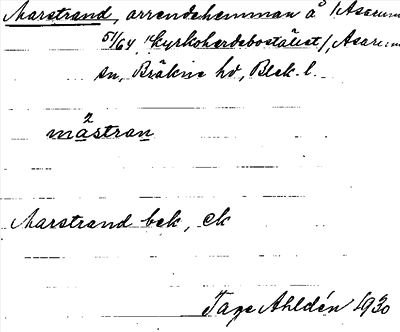 Marstrand, arrendehemman å 1 Asarum
51/64, "kyrkoherdebostället", Asarums
sn, Bräkne hd, Blek. l.
2
mastran
Marstrand bek, ck
Tage Ahldén 1930